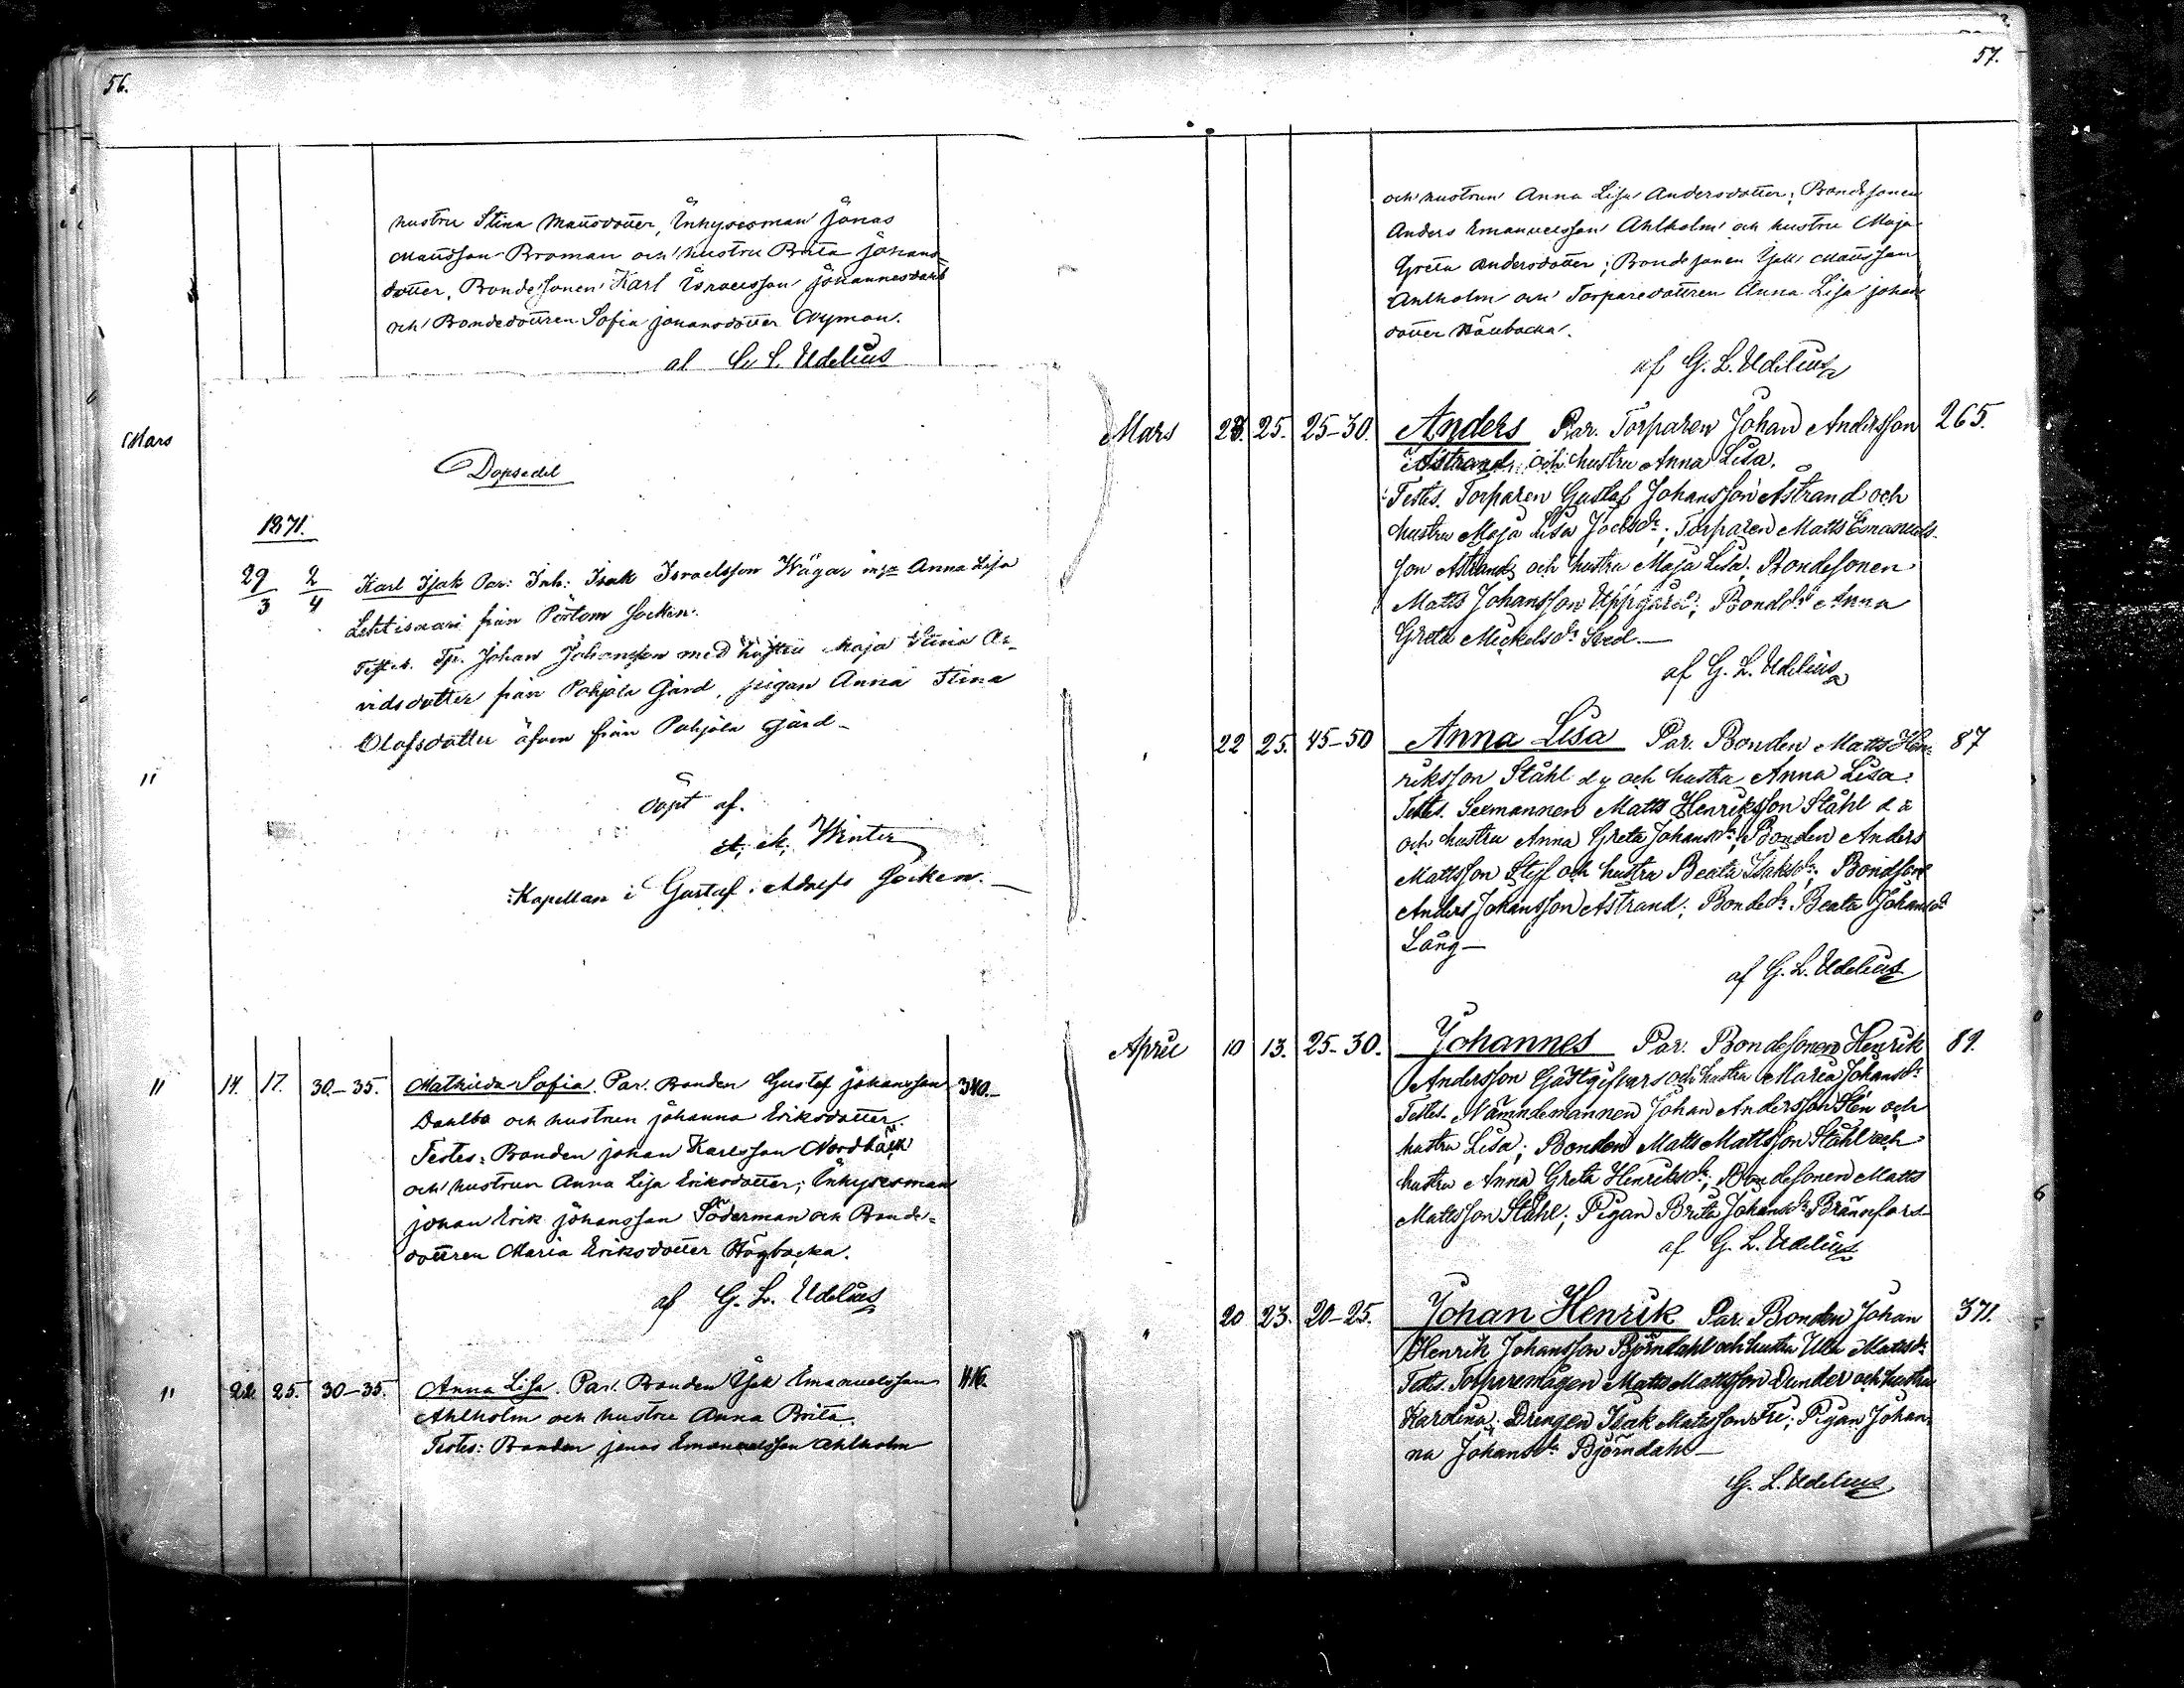 56.
hustru Stina Mattsdotter, Inhysesman Jonas
Mattsson Broman och hustru Brita Johans=
dotter, Bondesonen Karl Israelsson Johannesdahl
och Bondedottren Sofia Johansdotter Nyman.
af G. L. Udelius
Mars
Dopsedel
1871.
29/3 2/4 Karl Isak Par: Inh: Isak Israelsson Wägar Anna Lisa
från Pörtom Socken.
Testes. Johan Johansson med hustru Maja Stina Ar-
vidsdotter från Pohjola Gård, pigan Anna Stina
Olofsdotter äfven från Pohjola gård-
"
döpt af.
Winter
Kapellan i Gustaf Adolfs Socken.
" 14. 17. 30-35. Mathilda Sofia. Par. Bonden Gustaf Johansson 340.
Dahlbo och hustrun Johanna Eriksdotter.
Testes: Bonden Johan Karlsson Nordbäck
och hustrun Anna Lisa Eriksdotter; Inhysesman
Johan Erik Johansson Söderman och Bonde=
dottren Maria Eriksdotter Högbacka.
af G. L. Udelius
" 22. 25. 30-35. Anna Lisa. Par. Bonden Isak Emanuelsson
Ahlholm och hustru Anna Brita.
Testes: Bonden Jonas Emanuelsson Ahlholm
57.
och hustrun Anna Lisa Andersdotter; Bondesonen
Anders Emanuelsson Ahlholm och hustru Maja
Greta Andersdotter; Bondesonen Isak Mattsson
Ahlholm och Torparedottren Anna Lisa Johans
dotter
af G. L. Udelius
Mars 23. 25. 25-30. Anders Par. Torparen Johan Andersson 265.
Åstrand och hustru Anna Lisa.
Testes. Torparen Gustaf Johansson Åstrand och
hustru Maja Lisa Joelsdr; Torparen Matts Emanuels-
son Åstrand och hustru Maja Lisa; Bondesonen
Matts Johansson Uppgård; Bondedr Anna
Greta Mickelsdr
af G. L. Udelius
" 22 25. 45-50 Anna Lisa Par. Bonden Matts Hen- 87
riksson Ståhl d y och hustru Anna Lisa.
Testes. Sexmannen Matts Henriksson Ståhl d ä
och hustru Anna Greta Johansdr; Bonden Anders
Mattsson Styf och hustru Beata Isaksdr; Bondson
Anders Johansson Åstrand; Bondedr. Beata Johansdr
Lång-
af G. L. Udelius
April 10 13. 25-30. Johannes Par. Bondesonen Henrik 89.
Andersson Gästgifvars och hustru Maria Johansdr
Testes. Nämndemannen Johan Andersson Sten och
hustru Lisa; Bonden Matts Mattsson Ståhl och
hustru Anna Greta Henriksdr; Bondesonen Matts
Mattsson Ståhl; Pigan Brita Johansdr Brännfors-
af G. L. Udelius
" 20 23. 20-25. Johan Henrik Par. Bonden Johan 371.
Henrik Johansson Björndahl och hustru Ulla Mattsdr
Testes. Torparemågen Matts Mattsson Dunder och hustru
Karolina; Drengen Isak Mattsson Fri; Pigan Johan-
na Johansdr Björndahl-
G. L. Udelius